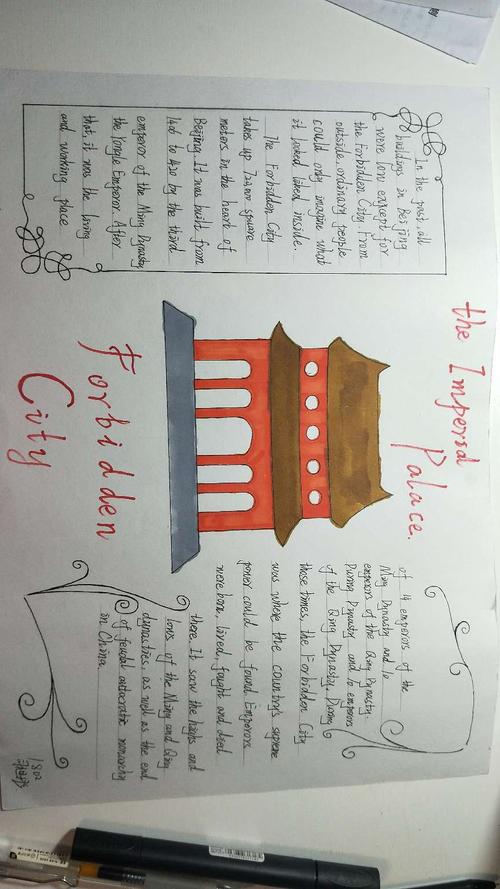 the Imperial
Palace.
In the past, all
buildings in Beijing
were low except for
the Forbidden City. From
outside, ordinary people
could only imagine what
it looked liked inside.
The Forbidden City
takes up 720,000 square
meters in the heart of
Beijing. It was built from
1406 to 1420 by the third
emperor of the Ming Dynasty,
the Yongle Emperor. After
that, it was the living
and working place
of 14 emperors of the
Ming Dynasty and 10
emperors of the Qing Dynasty.
During Dynasty and 10 emperors
of the Qing Dynasty. During
those times, the Forbidden City
was where the country's supreme
power could be found. Emperors
were born, lived, fought and died
there. It saw the highs and
lows of the Ming and Qing
dynasties, as well as the end
of feudal autocratic monarchy
in China.
Forbidden
City
1802